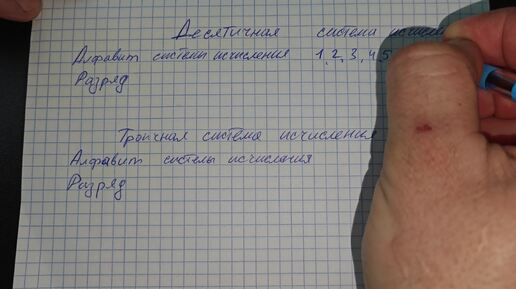 Десятичная система исчисле
Алфавит системы исчисления 1, 2, 3, 4, 5
Разряд
Троичная система исчисления
Алфавит системы исчисления
Разряд